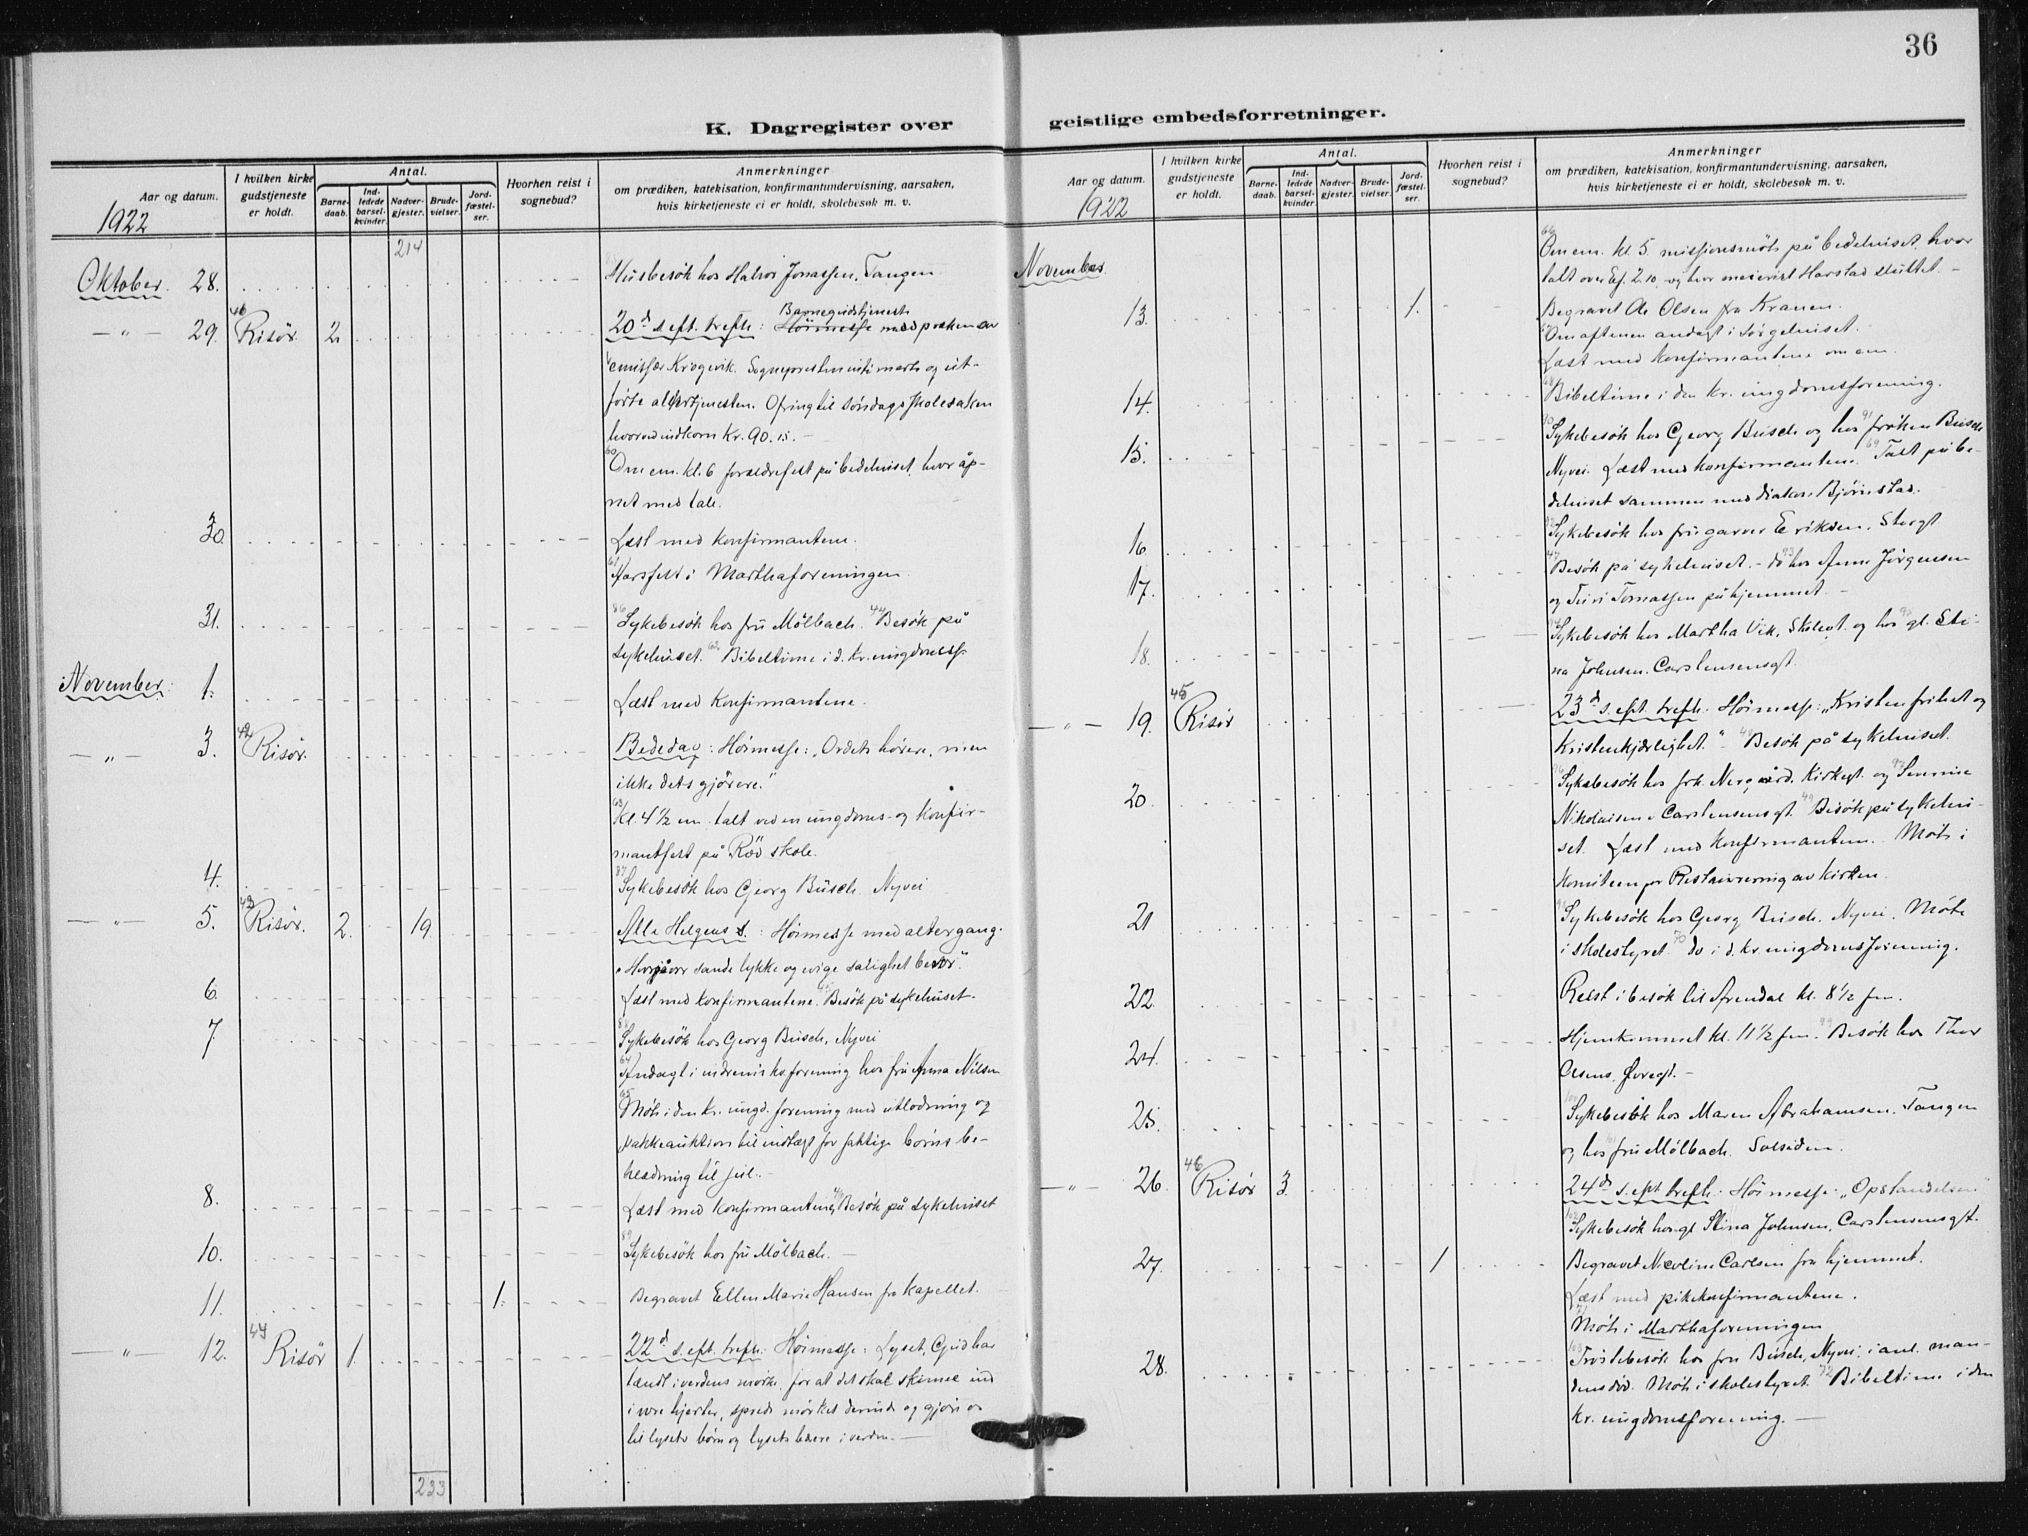 36
K. Dagregister over geistlige embedsforretninger.
Aar og datum.
I hvilken kirke gudstjeneste er holdt.
Antal.
Barne-daab.
Ind-ledede barsel-kvinder.
Nadver-gjester.
Brude-vielser.
Jord-fæstel-ser.
Hvorhen reist i sognebud?
Anmerkninger
om prædiken, katekisation, konfirmantundervisning, aarsaken,
hvis kirketjeneste ei er holdt, skolebesøk m. v.
1922
214
Oktober 28. Husbesök hos Halvor Jonassen, Tangen
Barnegudstjeneste
—"— 29. Risör. 2. 20d s. eft. trefh: Höimesse med præken av
emissær Krogevik. Sognepresten intimerte og ut-
förte altertjenesten. Ofring til söndagsskolesaken
hvorved indkom kr. 90.15.—
60 Om em. kl. 6 forældrefest på bedehuset hvor åp-
net med tale.
30. Læst med konfirmantene.
61 i Marthaforeningen.
31. 86 Sykebesök hos fru Mölbach. 44 Besök på
sykehuset. 62 Bibeltime i d. kr. ungdomsf.
November: 1. Læst med konfirmantene.
—"— 3. 42 Risör. Bededag: Höimesse: „Ordets hörere, men
ikke dets gjörere."
63 Kl. 4½ em. talt ved en ungdoms- og konfir-
mantfest på Röd skole.
4. 87 Sykebesök hos Georg Büsch, Nyvei
—"— 5. 43 Risör. 2. 19 Alle Helgens s.: Höimesse med altergang.
sande lykke og evige salighet beror".
6. Læst med konfirmantene. 45 Besök på sykehuset.
7. 88 Sykebesök hos Georg Büsch, Nyvei
64 Andagt i indremis forening hos fru Anna Nilsen
65 Möte i den kr. ungd. forening med utlodning og
pakkeauktion til indtægt for fattige börns be-
klædning til jul.—
8. Læst med konfirmantene, 46 Besök på sykehuset
10. 89 Sykebesök hos fru Mölbach.—
11. 1. Begravet Ellen Marie Hansen fra kapellet.
—"— 12. 44 Risör 1. 22d s. eft. trefh: Höimesse: Lyset, Gud har
tændt i verdens mörke, for at det skal skinne ind
i vore hjerter, sprede mörket derinde og gjöre os
til lysets börn og lysets bærere i verden.—
233
Aar og datum.
I hvilken kirke gudstjeneste er holdt.
Antal.
Barne-daab.
Ind-ledede barsel-kvinder.
Nadver-gjester.
Brude-vielser.
Jord-fæstel-ser.
Hvorhen reist i sognebud?
Anmerkninger
om prædiken, katekisation, konfirmantundervisning, aarsaken,
hvis kirketjeneste ei er holdt, skolebesøk m. v.
1922
November. 66 Om em. kl. 5 missionsmöte på bedehuset hvor
talt over Ef. 2.10, og hvor Harstad sluttet.—
13. 1. Begravet Olsen fra Kranen.
67 Om aftenen andagt i sörgehuset.
Læst med konfirmantene om em.
14. 68 Bibeltime i den kr. ungdomsforening.
15. 90 Sykebesök hos Georg Büsch og hos 91 fröken Büsch
Nyvei. Læst med konfirmantene. 69 Talt på be-
dehuset sammen med diakon Björnstad.
16. 92 Sykebesök hos fru garver Eriksen, Storgt
17. 47 Besök på sykehuset.— 93 do hos Anne Jörgensen
og Tomassen på hjemmet.—
18. 94 Sykebesök hos Martha Vik, Skolegt. og hos 95 gl. Sti-
na Johnsen, Carstensensgt.
—"— 19. 45 Risör 23d s. eft. trefh: Höimesse: „Kristen frihet og
kristenkjærlighet." 48 Besök på sykehuset.
20. 96 Sykebesök hos frk. Nergård, Kirkegt. og 97 Severine
Nikolaisen, Carstensensgt. 49 Besök på sykehu-
set. Læst med konfirmantene. Möte i
komiteen for Restaurering av kirken.
21 98 Sykebesök hos Georg Büsch, Nyvei. Möte
i skolestyret. 70 do i d. kr. ungdomsforening.
22 Reist i besök til Arendal kl. 8½ fm.
24. Hjemkommet kl. 11½ fm. 99 Besök hos Thor
Olsens, gt.—
25. 100 Sykebesök hos Maren Abrahamsen, Tangen
og hos fru Mölbach, Solsiden.
—"— 26. 46 Risör 3. 24d s. eft. trefh: Höimesse: „Opstandelsen"
102 Sykebesök hos gl. Stina Johnsen, Carstensensgt.
27. 1 Begravet Nicoline Carlsen fra hjemmet.
Læst med pikekonfirmantene.
71 Möte i Marthaforeningen
28. 103 Tröstebesök hos fru Büsch, Nyvei, i anl. man-
dens död. Möte i skolestyret. 72 Bibeltime i den
kr. ungdomsforening.—